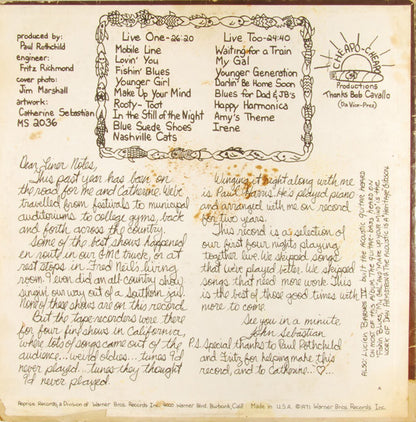 produced by:
Paul Rothchild
engineer:
Fritz Richmond
cover photo:
Jim Marshall
artwork:
Catherine Sebastian
MS 2036
Live One-26:20
Mobile Line
Lovin' You
Fishin' Blues
Younger Girl
Make Up Your Mind
Rooty-Toot
In the Still of the Night
Blue Suede Shoes
Nashville Cats
Live Too-24:40
Waiting for a Train
My Gal
Younger Generation
Darlin' Be Home Soon
Blues for Dad & JB's
Happy Harmonica
Amy's Theme
Irene
CHEAPO-CHEAPO
Productions
Thanks Bob Cavallo
(Da Vice-Prez)
Dear Liner Notes,
This past year has been on
the road for me and Catherine. We've
travelled from festivals to municipal
auditoriums to college gyms, back
and forth across the country.
Some of the best shows happened
en rout in our GMC truck, or at
rest stops in Fred Neil's living
room. I even did an all-country show
singin' our way out of a Southern jail.
None of these shows are on this record.
But the tape recorders were there
for four fine shows in California,
where lots of songs came out of the
audience...weird oldies...tunes I'd
never played...tunes they thought
I'd never played.
Winging it right along with me
is Paul Harris. He's played piano
and arranged with me on record
for two years.
This record is a selection of
our first four nights playing
together live. We skipped songs
that we'd played better. We skipped
songs that need more work. This
is the best of those good times with
more to come.
See you in a minute,
John Sebastian
P.S. Special thanks to Paul Rothchild
and Fritz for helping make this
record, and to Catherine...♡...
ALSO: Lucien Barnes IV built the acoustic guitar heard
on most of this album. The guitar
work of Dan Armstrong. The acoustic is a Heritage Gibson.
Reprise Records, a Division of Warner Bros. Records Inc. 4000 Warner Blvd. Burbank, Calif. Made in U.S.A. ©1971 Warner Bros. Records Inc.